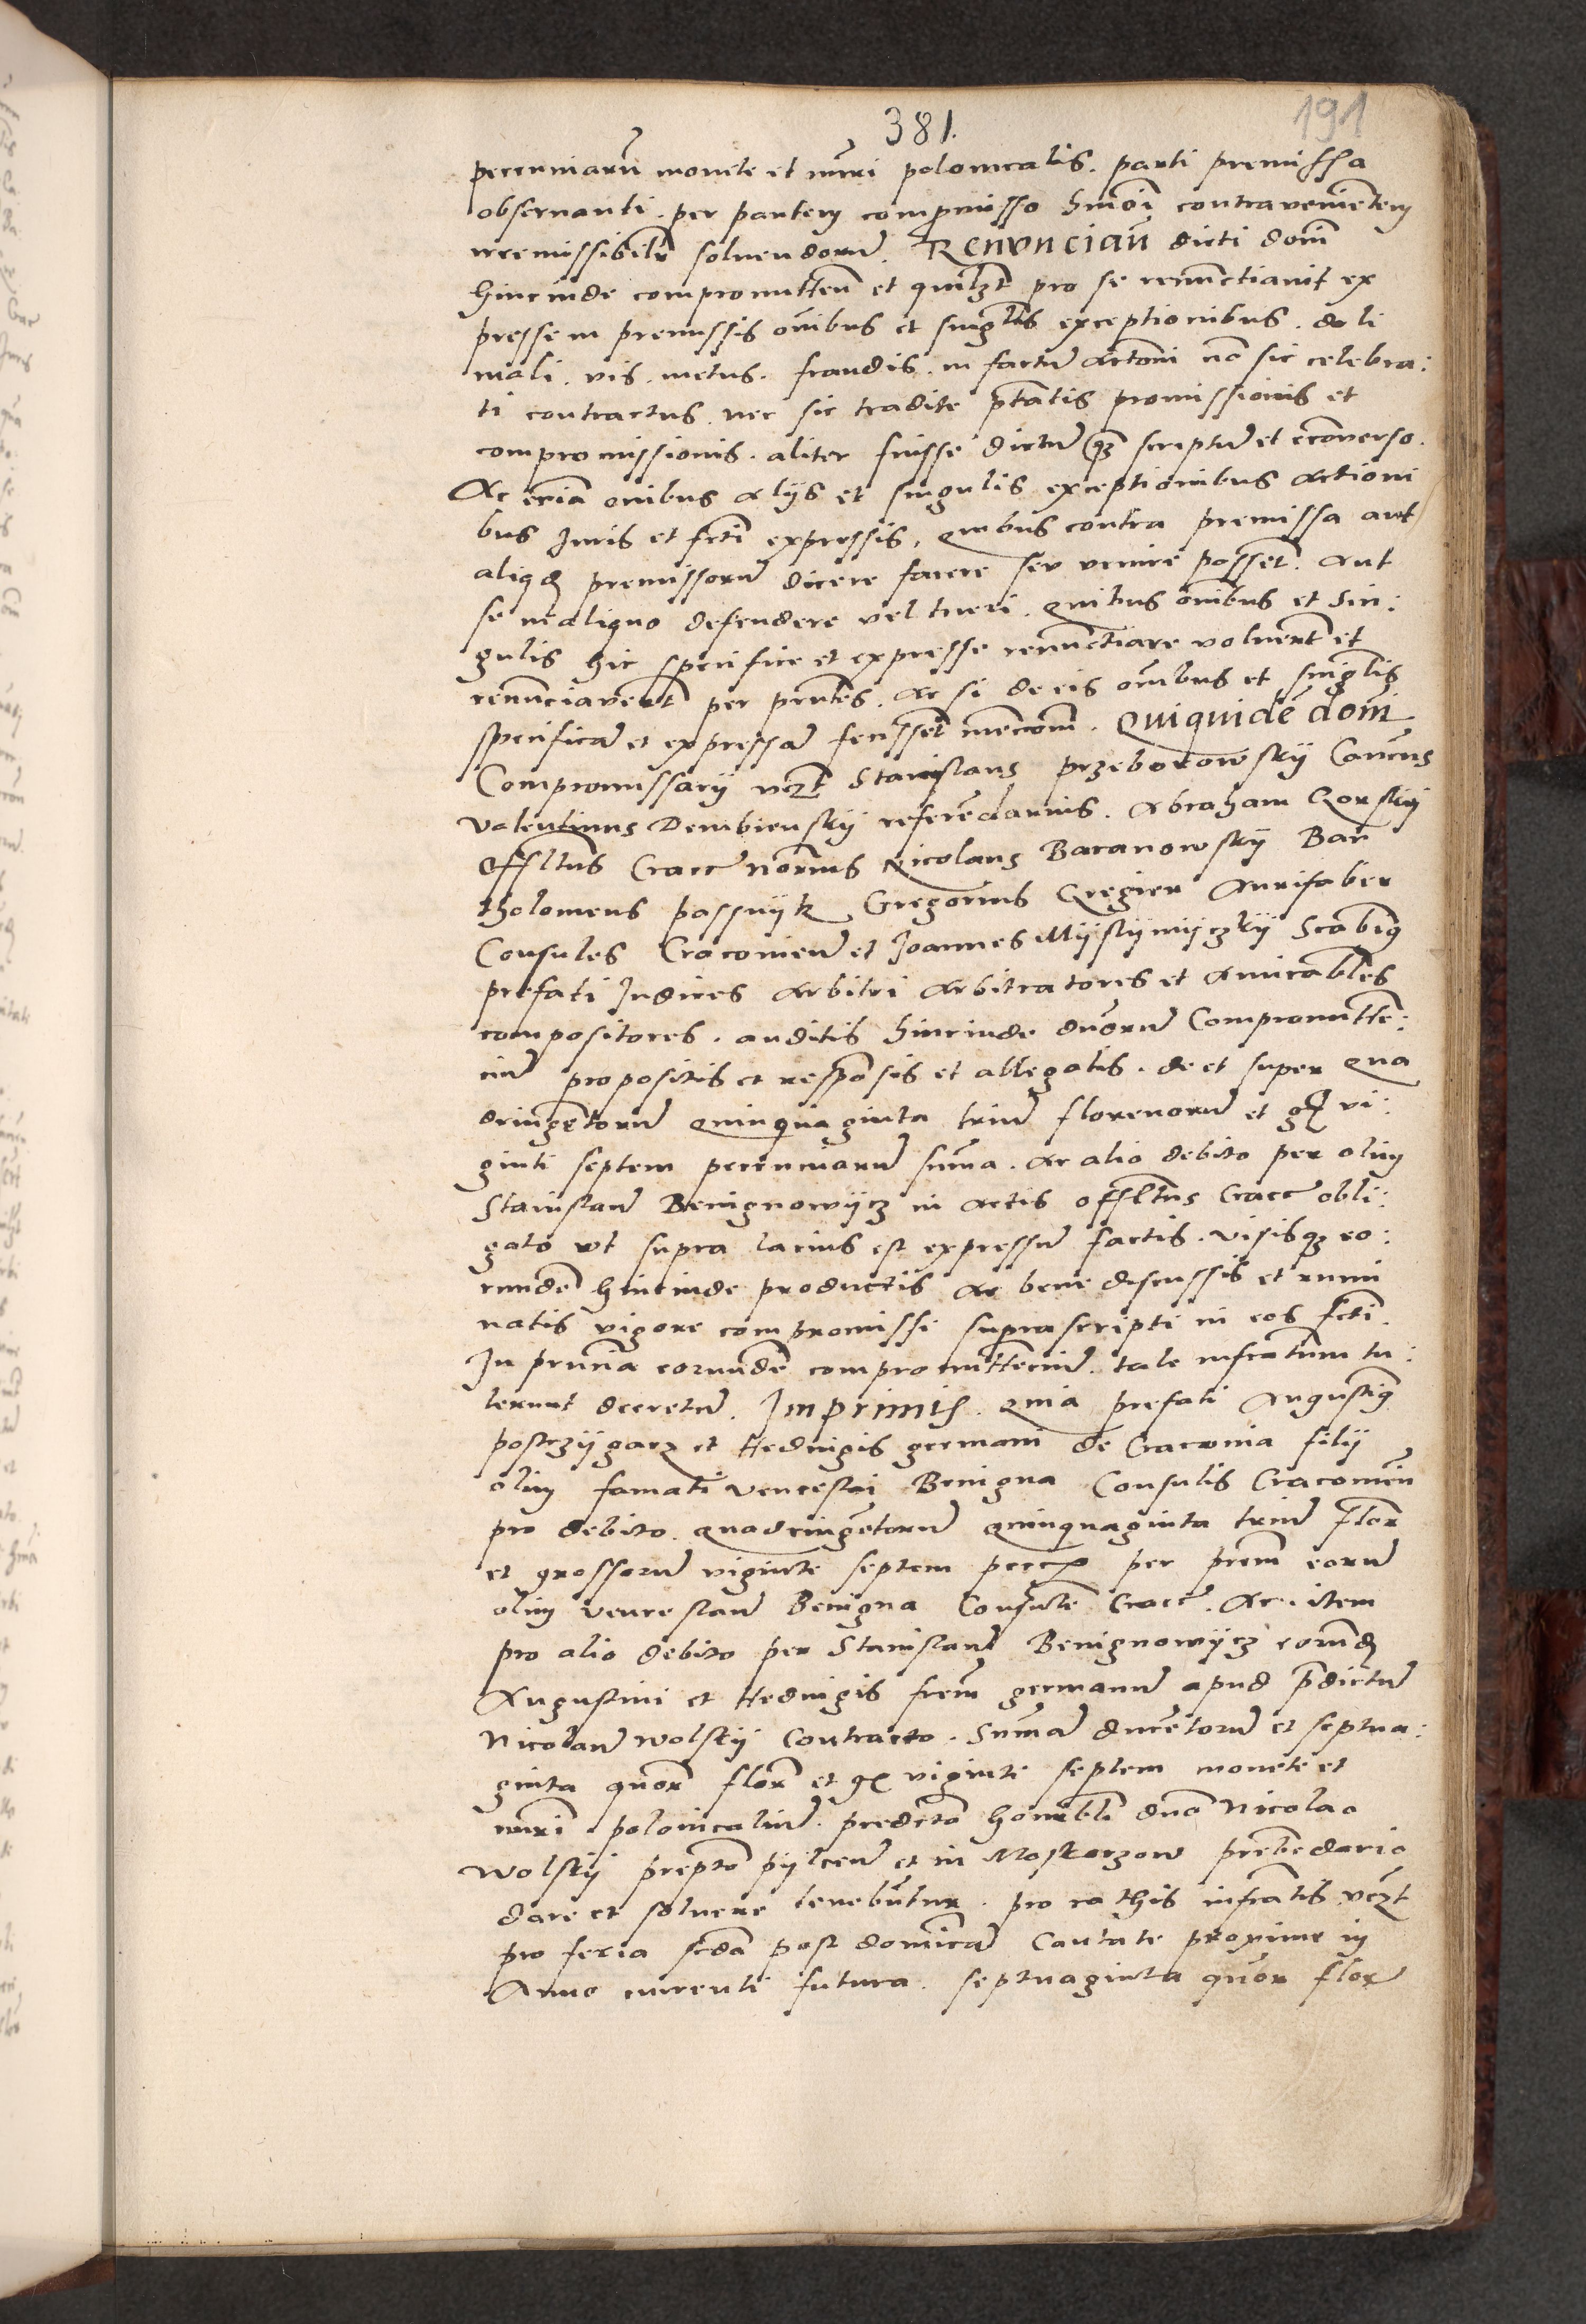 381.
191
pecuniarū monete et nūri polonicalis. parti premissa
obseruanti. per partem compromisso hmōi contravenientem
irremissibilr̄ soluendorū. Renunciaūt dicti domī
hincinde compromittentī et quilz̄t pro se renunctiauit ex
presse in premissis om̄ibus et singl̄is exceptionibus. doli
mali. vis. metus. fraudis. in factū actōni nō sic celebra:
ti contractus. nec sic tradite ptātis promissionis et
compromissionis. aliter fuisse dictū qz̄ scriptū et ecōuerso.
Ac eciā om̄ibus alijs et singulis exceptionibus actioni
bus Juris et fcti expressis, quibus contra premissa aut
aliqd̄ premissorū dicere facere seu venire posset. aut
se in aliquo defendere vel tueri. quibus om̄ibus et Sin:
gulis hic specifice et expresse renūctiare voluerūt et
renūciaverūt per prn̄tes. ac si de eis om̄ibus et singl̄is
specificā et expressā fecissēt mēcionē. Quiquidē domī
Compromissarij vcz̄t Stanislaus przeborowskij Canc̄us
Valentinus Dembienskij referēdarius. Abraham Gorskij
Offlt̄us Cracc̄ notarius Nicolaus Baranowskij Bar
tholomeus passuijk Gregorius Gregier Aurifaber
Consules Cracouien̄ et Joannes Mijslijmijczkij Scabiq
prefati Judices Arbitri Arbitratores et amicabiles
compositores. auditis hincinde duorū Compromittē:
ciū propositis et respōsis et allegatis. de et super qua
dringētorū quinquaginta triū florenorū et gꝭ vi:
ginti septem pecuniarū sūma. Ac alio debito per olim
Stanislaū Benignowijcz in Actis offlt̄us Cracc̄ obli:
gato vt supra lacius est expressū factis. visisqz eo:
rundē hincinde productis ac bene discussis et rumi
natis vigore compromissi suprascripti in eos fcti.
In prn̄cia eorundē compromittenciū. tale infratum tu:
lerunt decretū. Imprimis. quia prefati Augustiq
postczijgacz et Hedvigis germani de Cracouia filij
olim famati Venceslai Benigna Consulis Cracouien̄
pro debito. quadringētorū quinquaginta triū flor
et grossorū viginti septem pecc̄ per prēm eorū
olim Venceslaū Benigna Consulē Cracc̄. Ac item
pro alio debito per Stanislaū Benignowijcz eorūd̄
Augustini et Hedvigis frēm germanū apud p̄dictū
Nicolaū Wolskij Contracto. Sūmā ducētorū et septua:
ginta quōr flor et gꝭ viginti septem monete et
nūri polonicaliū. predicto honorbli dn̄o Nicolao
Wolskij prepto pijlcen̄ et in Moskorzow prebēdario
dare et soluere tenebūtur. pro rathis infratis vcz̄t
pro feria scdā post dominicā Cantate proxime in
Anno currenti futura. septuaginta quōr flor